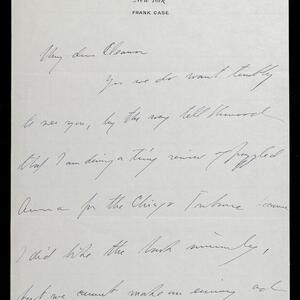 New York
FRANK CASE.
My dear Eleanor
Yes we do want terribly
to see you, by the way tell
that I am doing a tiny review of
Anna for the Chicago Tribune
I did like the book sincerely,
but we cannot make an evening